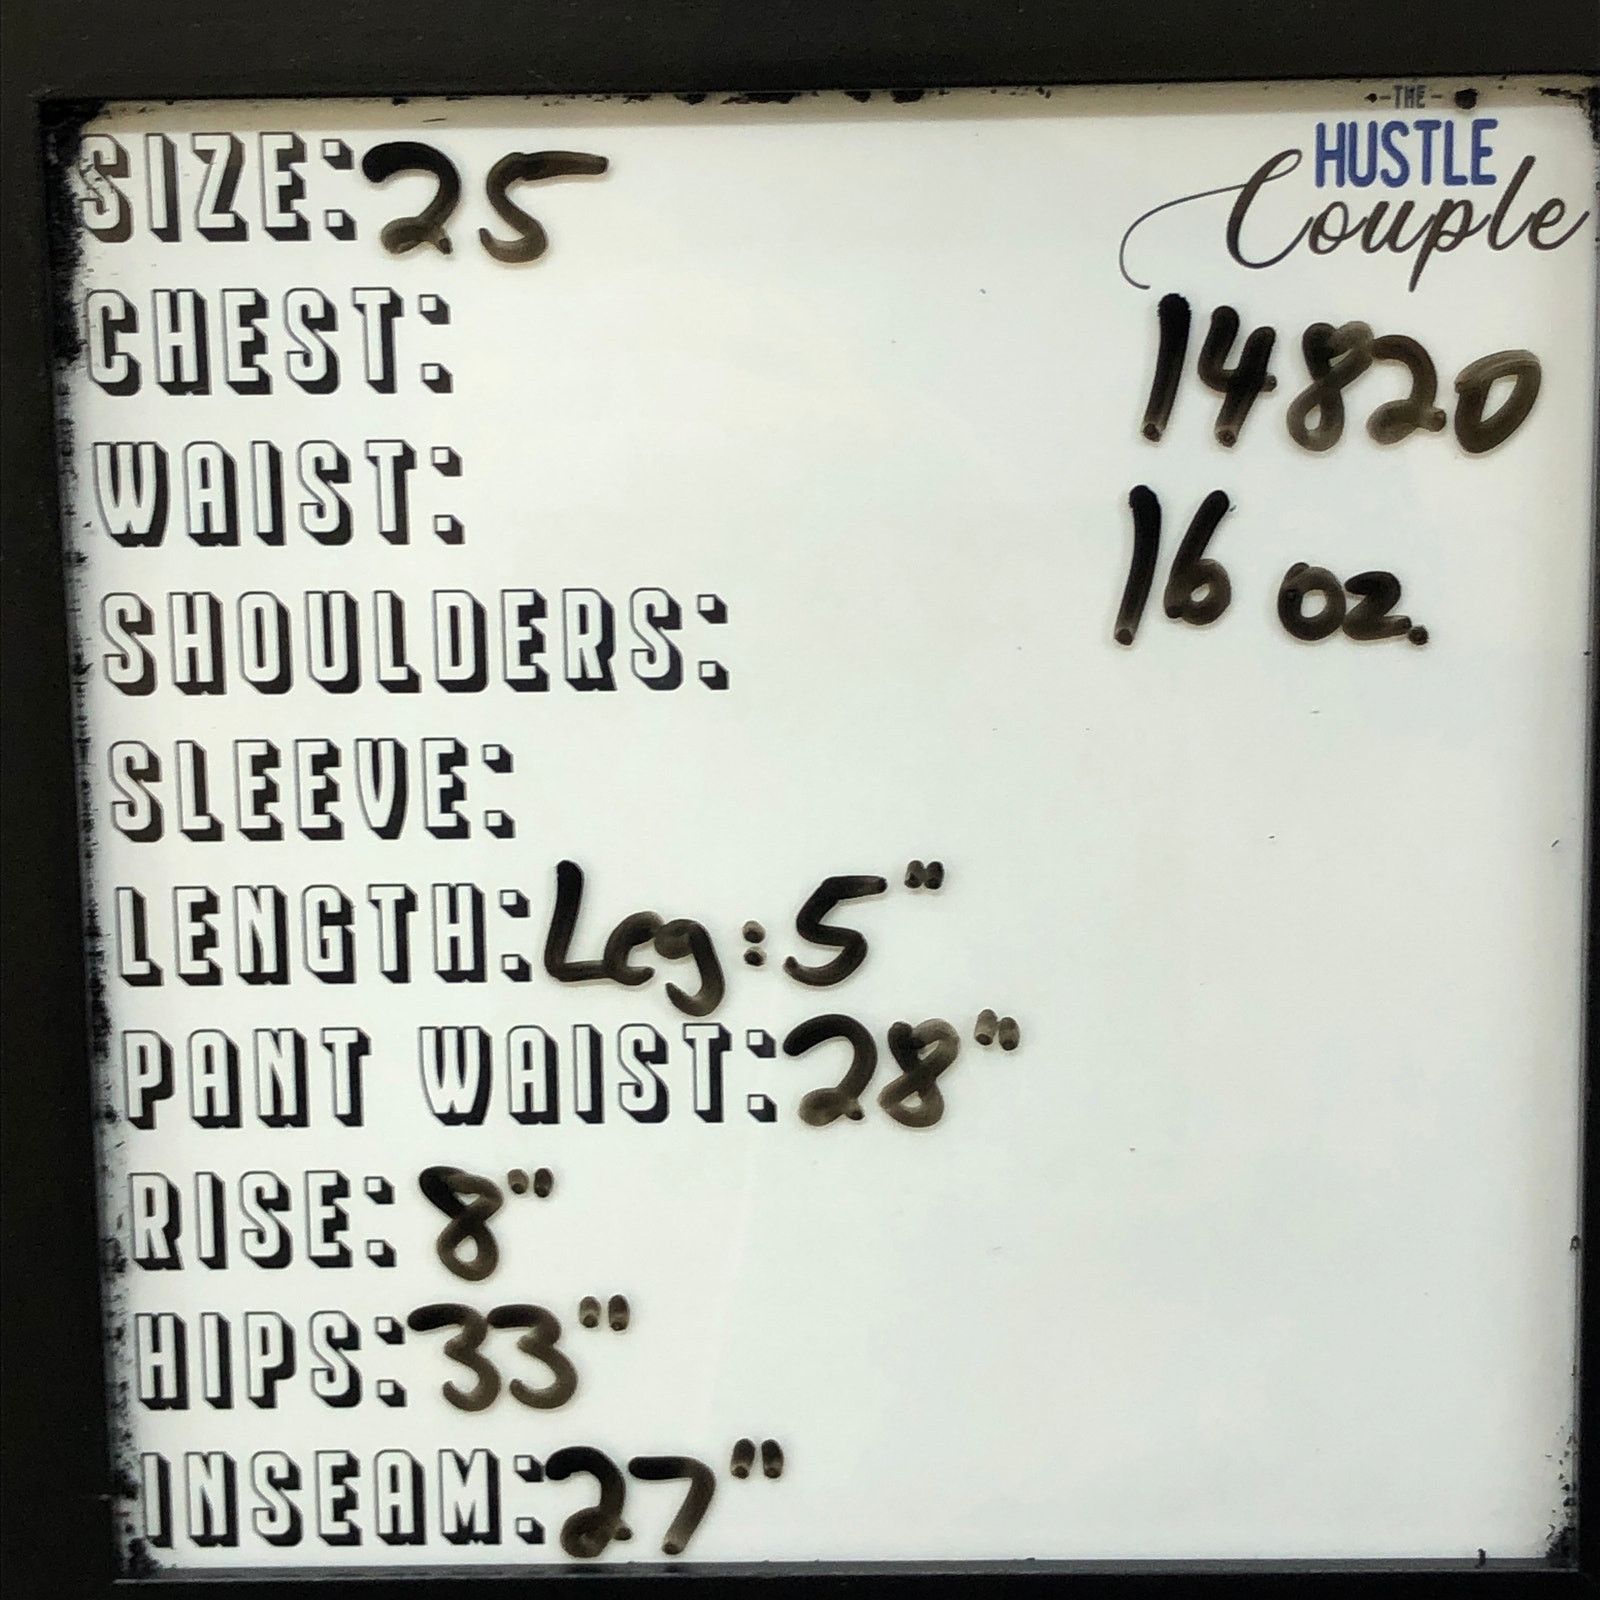 -THE-
HUSTLE
Couple
SIZE: 25
CHEST:
14820
WAIST:
16 oz.
SHOULDERS:
SLEEVE:
LENGTH: Leg: 5"
PANT WAIST: 28"
RISE: 8"
HIPS: 33"
INSEAM: 27"